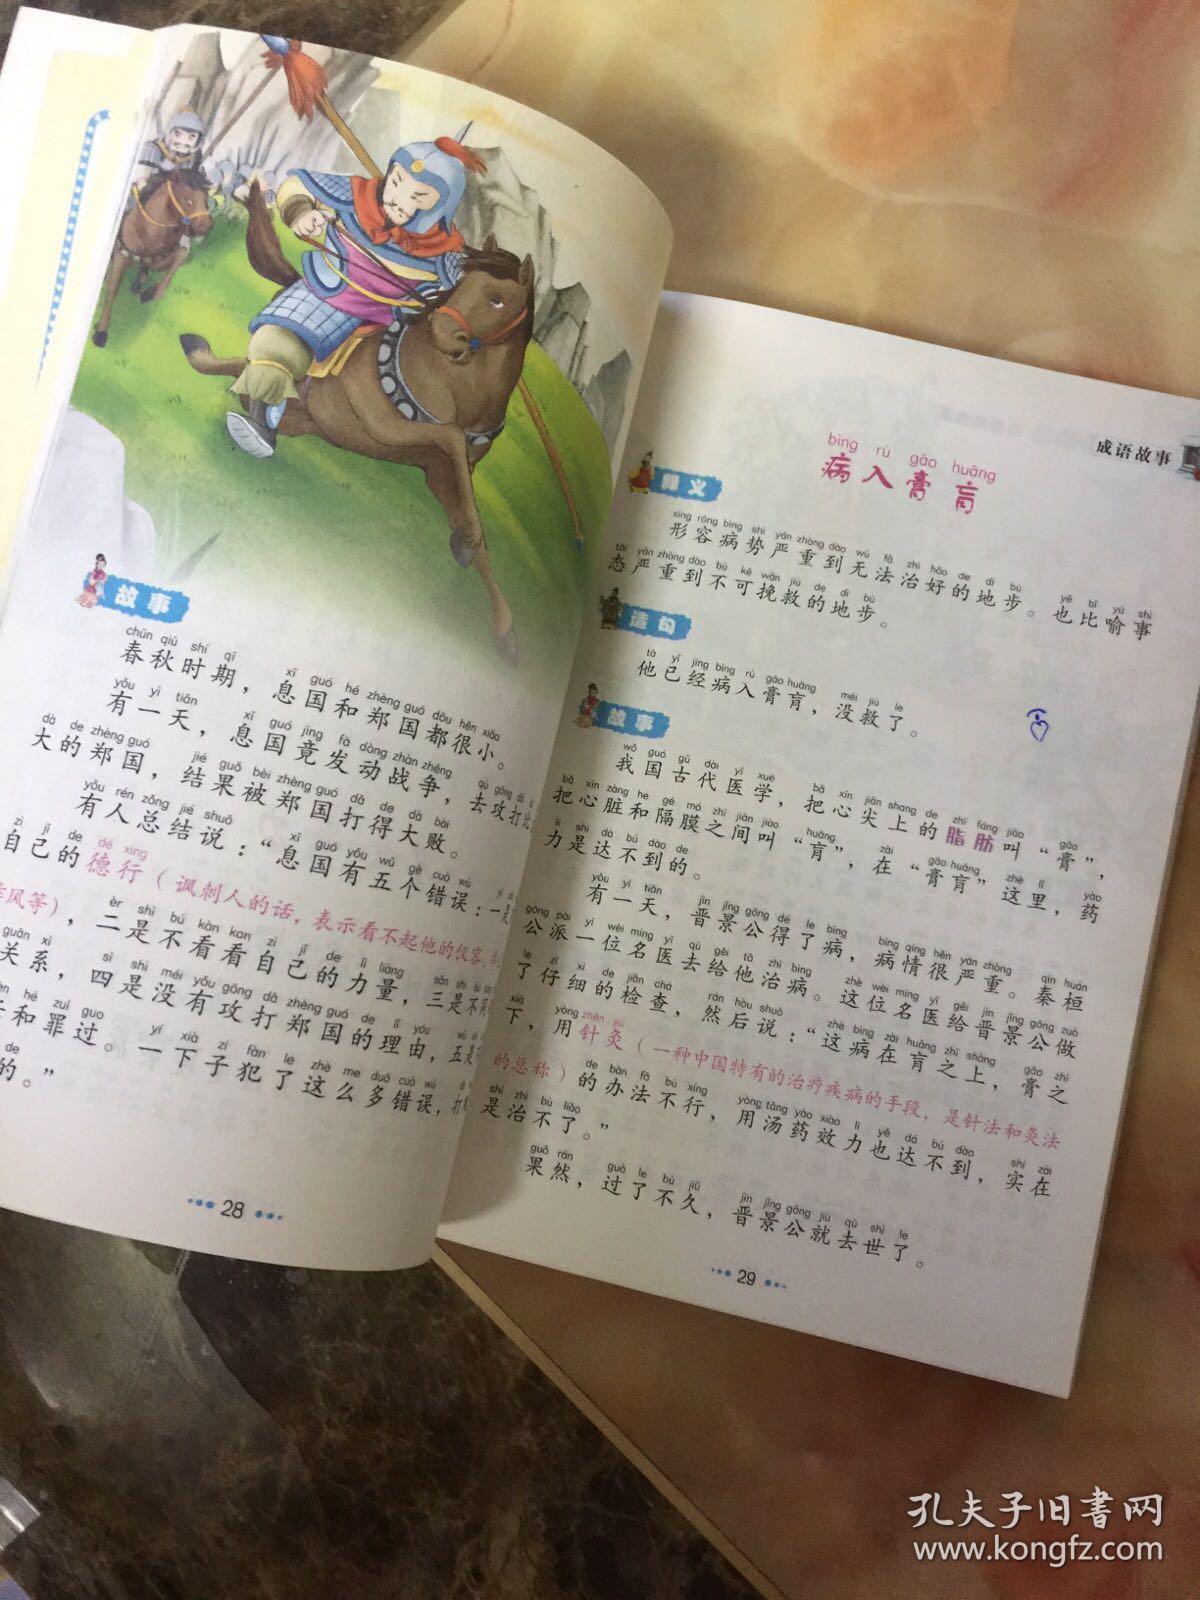 故事
chūn qiū shí qī xī guó hé zhèng guó dōu hěn xiǎo
春秋时期，息国和郑国都很小。
yǒu yì tiān xī guó jìng fā dòng zhàn zhēng
有一天，息国竟发动战争，去攻打比
dà de zhèng guó jié guǒ bèi zhèng guó dǎ de dà bài
大的郑国，结果被郑国打得大败。
yǒu rén zǒng jié shuō xī guó yǒu wǔ gè cuò wù
有人总结说：“息国有五个错误：一是
zì jǐ de dé xíng
自己的德行（讽刺人的话，表示看不起他的仪容、
风等），二是不看看自己的力量，三是不同
关系，四是没有攻打郑国的理由，五是
和罪过。一下子犯了这么多错误，打
的。”
28
成语故事
bìng rù gāo huāng
病入膏肓
释义
xíng róng bìng shì yán zhòng dào wú fǎ zhì hǎo de dì bù yě bǐ yù shì
形容病势严重到无法治好的地步。也比喻事
tài yán zhòng dào bù kě wǎn jiù de dì bù
态严重到不可挽救的地步。
造句
tā yǐ jīng bìng rù gāo huāng méi jiù le
他已经病入膏肓，没救了。
故事
wǒ guó gǔ dài yī xué bǎ xīn jiān shang de zhī fáng jiào gāo
我国古代医学，把心尖上的脂肪叫“膏”，
bǎ xīn zàng hé gé mó zhī jiān jiào huāng zài gāo huāng zhè lǐ yào
把心脏和隔膜之间叫“肓”，在“膏肓”这里，药
lì shì dá bú dào de
力是达不到的。
yǒu yì tiān jìn jǐng gōng dé le bìng bìng qíng hěn yán zhòng qín huán
有一天，晋景公得了病，病情很严重。秦桓
gōng pài yí wèi míng yī qù gěi tā zhì bìng zhè wèi míng yī gěi jìn jǐng gōng zuò
公派一位名医去给他治病。这位名医给晋景公做
le zǐ xì de jiǎn chá rán hòu shuō zhè bìng zài huāng zhī shàng gāo zhī
了仔细的检查，然后说：“这病在肓之上，膏之
xià yòng zhēn jiǔ
下，用针灸（一种中国特有的治疗疾病的手段，是针法和灸法
de bàn fǎ bù xíng yòng tāng yào xiào lì yě dá bú dào shí zài
的总称）的办法不行，用汤药效力也达不到，实在
shì zhì bù liǎo
是治不了。”
guǒ rán guò le bù jiǔ jìn jǐng gōng jiù qù shì le
果然，过了不久，晋景公就去世了。
29
孔夫子旧书网
www.kongfz.com